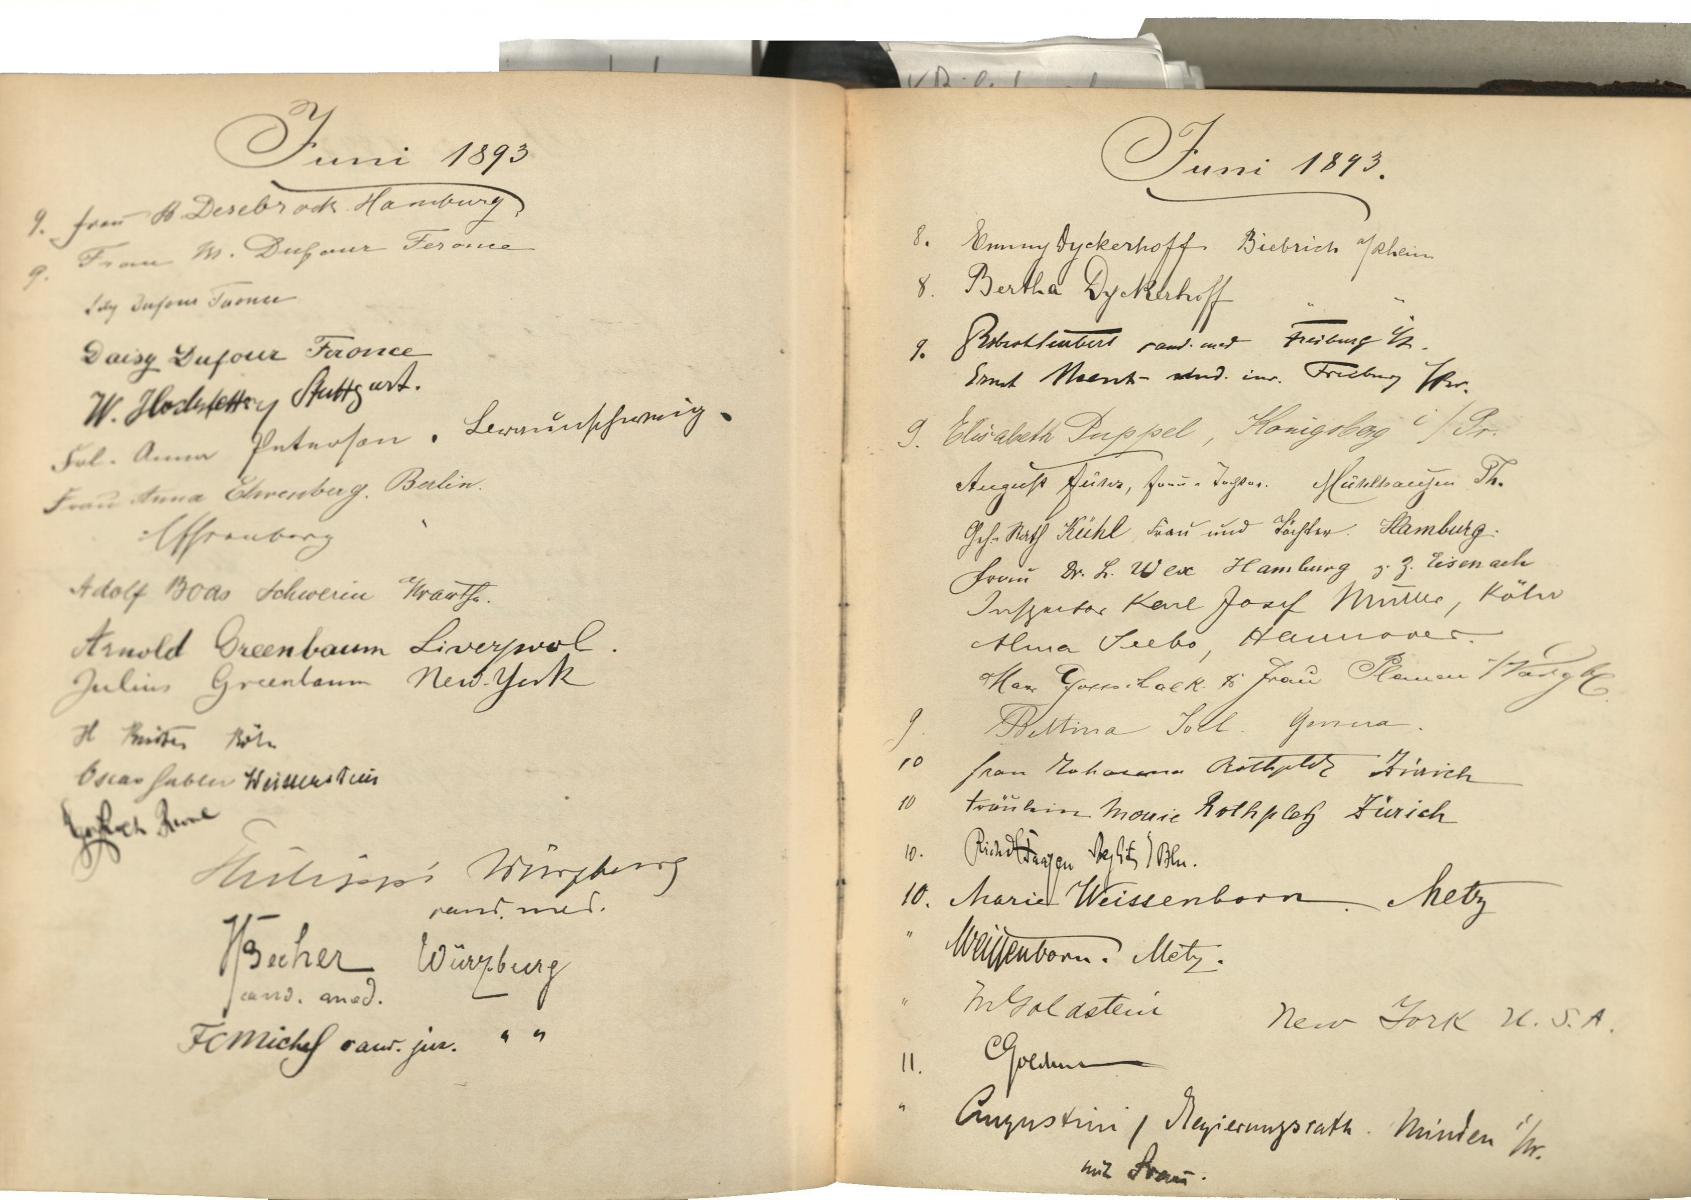 Juni 1893
9. Frau B Desebrock Hamburg.
9. Frau M. Dufour Feronce
Lily Dufour Feronce
Daisy Dufour Feronce
W. Hochstetter Stuttgart.
Frl. Anna Peterson. Braunschweig.
Frau Anna Ehrenberg. Berlin.
Ehrenberg
Adolf Boas Schwerin a/Warthe.
Arnold Greenbaum Liverpool.
Julius Greenbaum New-York
H Köln
Oscar Gabler Weissenstein
Philippi Würzburg
cand. med.
Becher Würzburg
cand. med.
FC Michel cand. jur. " "
Juni 1893.
8. Emmy Dyckerhoff. Biebrich a/Rhein
8. Bertha Dyckerhoff " "
9. cand. med Freiburg i/Br.
Ernst stud. iur. Freiburg i/Br.
9. Elisabeth Puppel, Königsberg i/Pr.
August Frau u. Tochter. Mühlhausen Th.
Geh. Rath Kühl Frau und Töchter. Hamburg.
Frau Dr. L. Wex Hamburg z. Z. Eisenach
Inspector Karl Josef Müller, Köln
Alma Seebo, Hannover.
Max Gottschalk & Frau
9. Bettina Genua.
10 Frau Johanna Rothpletz Zürich
10 Fräulein Marie Rothpletz Zürich
10. Steglitz / Bln.
10. Marie Weissenborn. Metz
" Weissenborn. Metz.
" M Goldstein New York U.S.A.
11.
" Augustini / Regierungsrath. Minden i/W.
mit Frau.